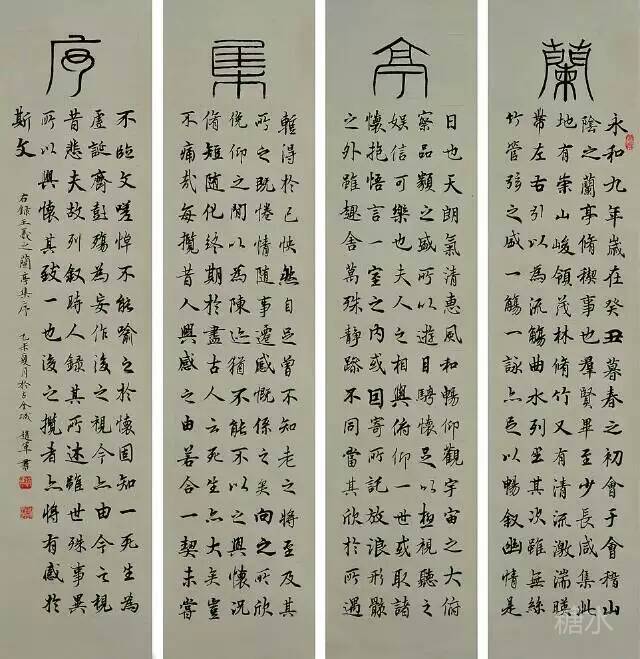 蘭
永和九年歲在癸丑暮春之初會于會稽山
陰之蘭亭脩稧事也羣賢畢至少長咸集此
地有崇山峻領茂林脩竹又有清流激湍暎
帶左右引以為流觴曲水列坐其次雖無絲
竹管弦之盛一觴一詠亦足以暢叙幽情是
亭
日也天朗氣清惠風和暢仰觀宇宙之大俯
察品類之盛所以遊目騁懷足以極視聽之
娛信可樂也夫人之相與俯仰一世或取諸
懷抱悟言一室之內或因寄所託放浪形骸
之外雖趣舍萬殊靜躁不同當其欣於所遇
集
暫得於己怏然自足曾不知老之將至及其
所之既惓情隨事遷感慨係之矣向之所欣
俛仰之間以為陳迹猶不能不以之興懷況
脩短隨化終期於盡古人云死生亦大矣豈
不痛哉每攬昔人興感之由若合一契未嘗
序
不臨文嗟悼不能喻之於懷固知一死生為
虛誕齊彭殤為妄作後之視今亦由今之視
昔悲夫故列叙時人錄其所述雖世殊事異
所以興懷其致一也後之攬者亦將有感於
斯文
右錄王羲之蘭亭集序 乙未夏月於古金城 趙軍書
糖水